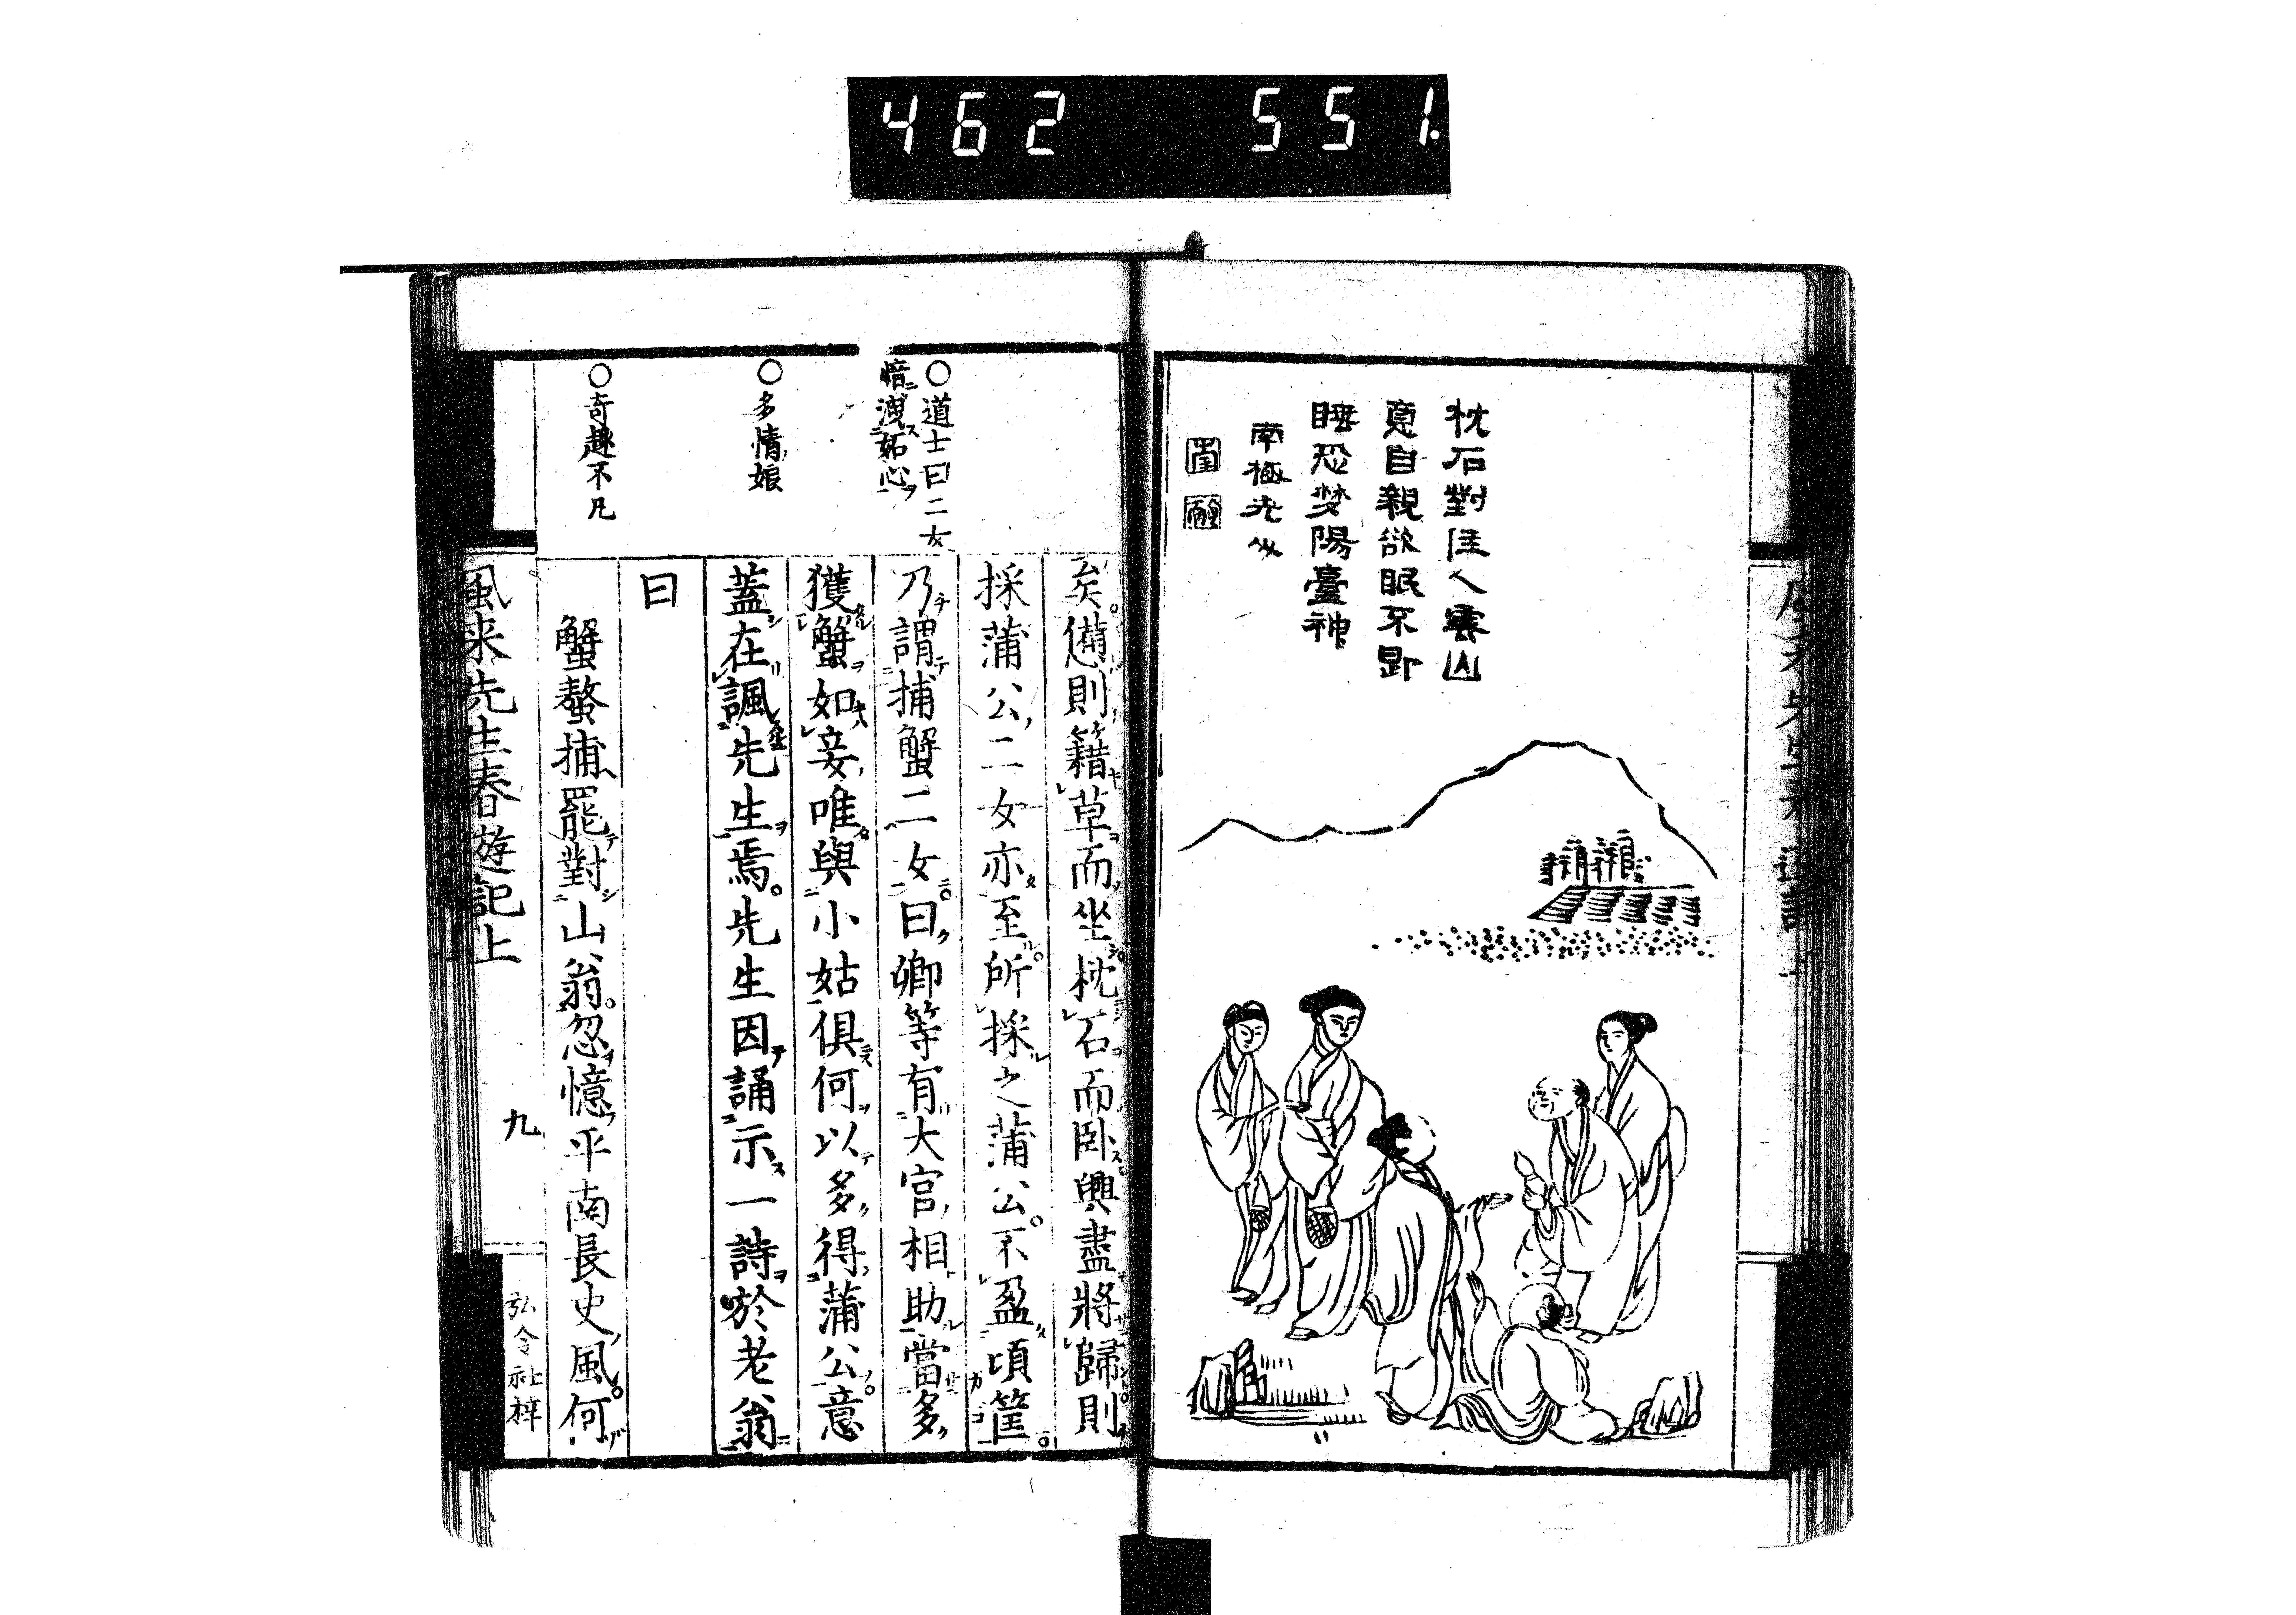 462 551.
枕石對佳人雲山
意自親欲眠不即
睡恐夢陽臺神
南極老人
○道士曰二女
暗洩妬心
○多情娘
○奇趣不凡
矣憊則籍草而坐枕石而臥興盡將歸則
採蒲公二女亦至所採之蒲公不盈頃筐
乃謂捕蟹二女曰卿等有大官相助當多
獲蟹如妾唯與小姑俱何以多得蒲公意
蓋在諷先生焉先生因誦示一詩於老翁
曰
蟹螯捕罷對山翁忽憶平南長史風何
風来先生春遊記上
九
弘令社梓